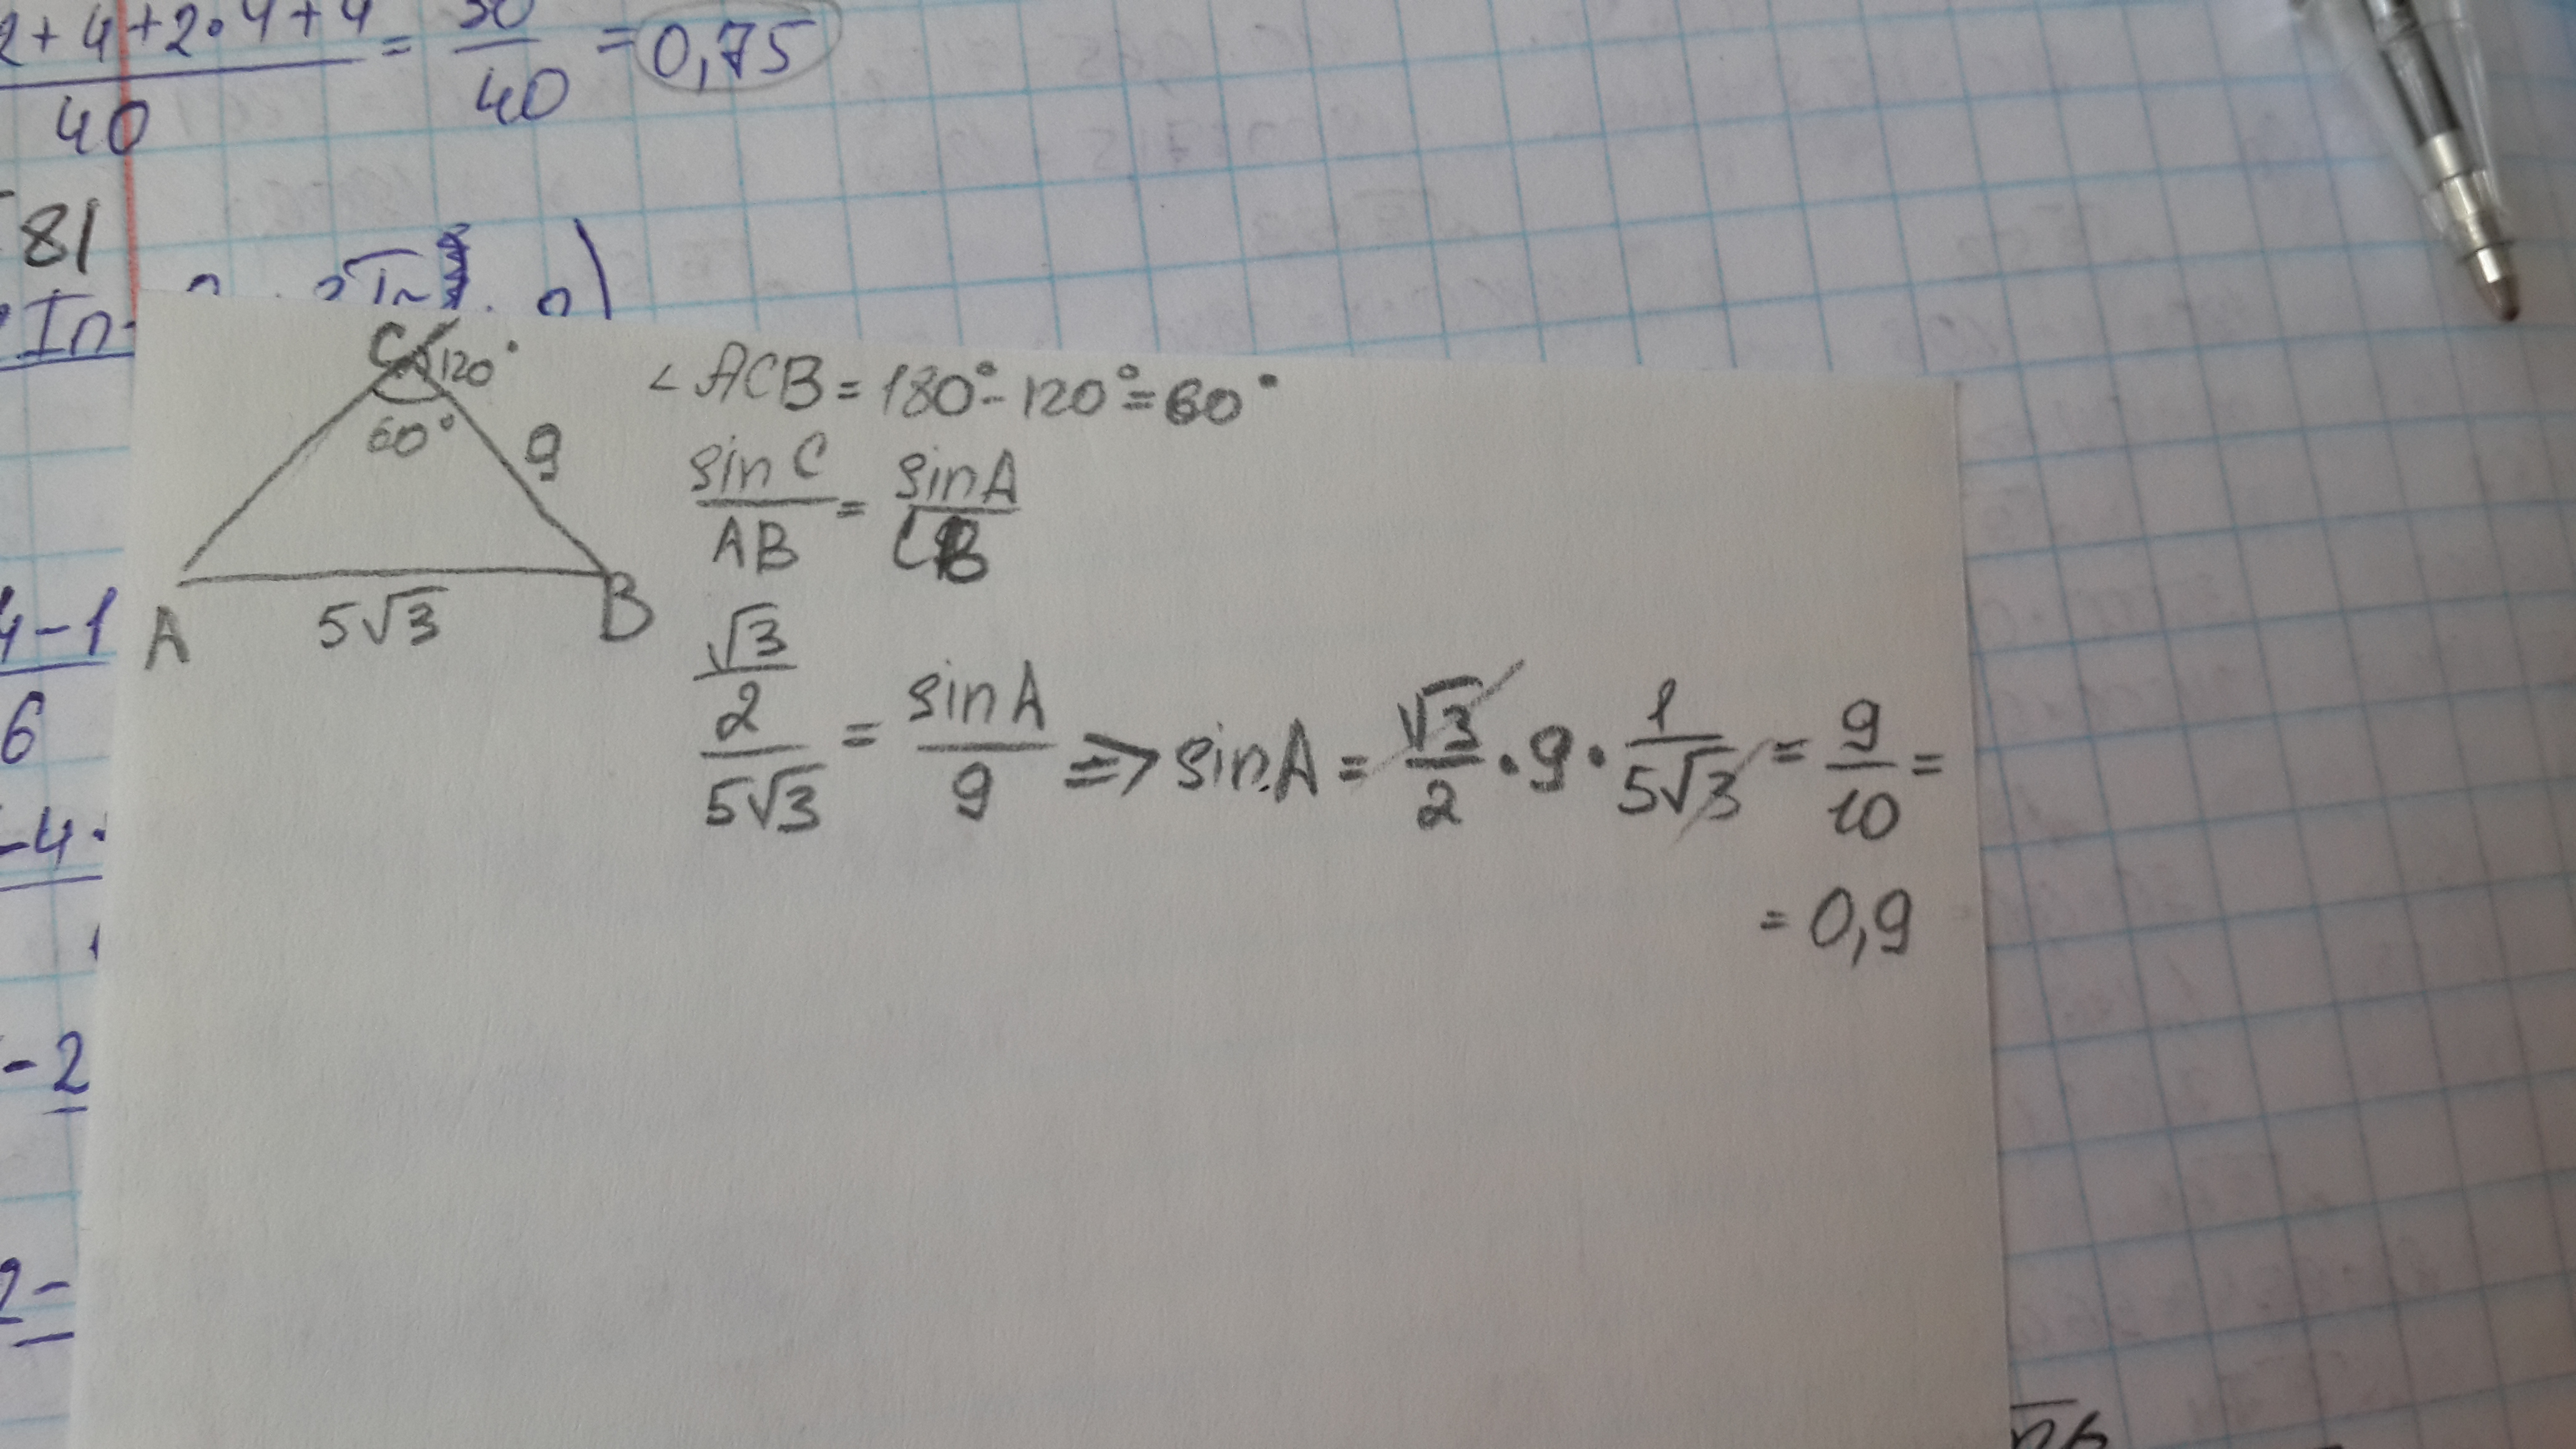 2+4+2·4+4/40 = 30/40 = 0,75
81
C 120°
60°
9
A 5√3 B
∠ACB = 180° - 120° = 60°
sin C/AB = sin A/CB
√3/2/5√3 = sin A/9 => sin A = √3/2 · 9 · 1/5√3 = 9/10 =
= 0,9
4-1
6
-4·
-2
2-